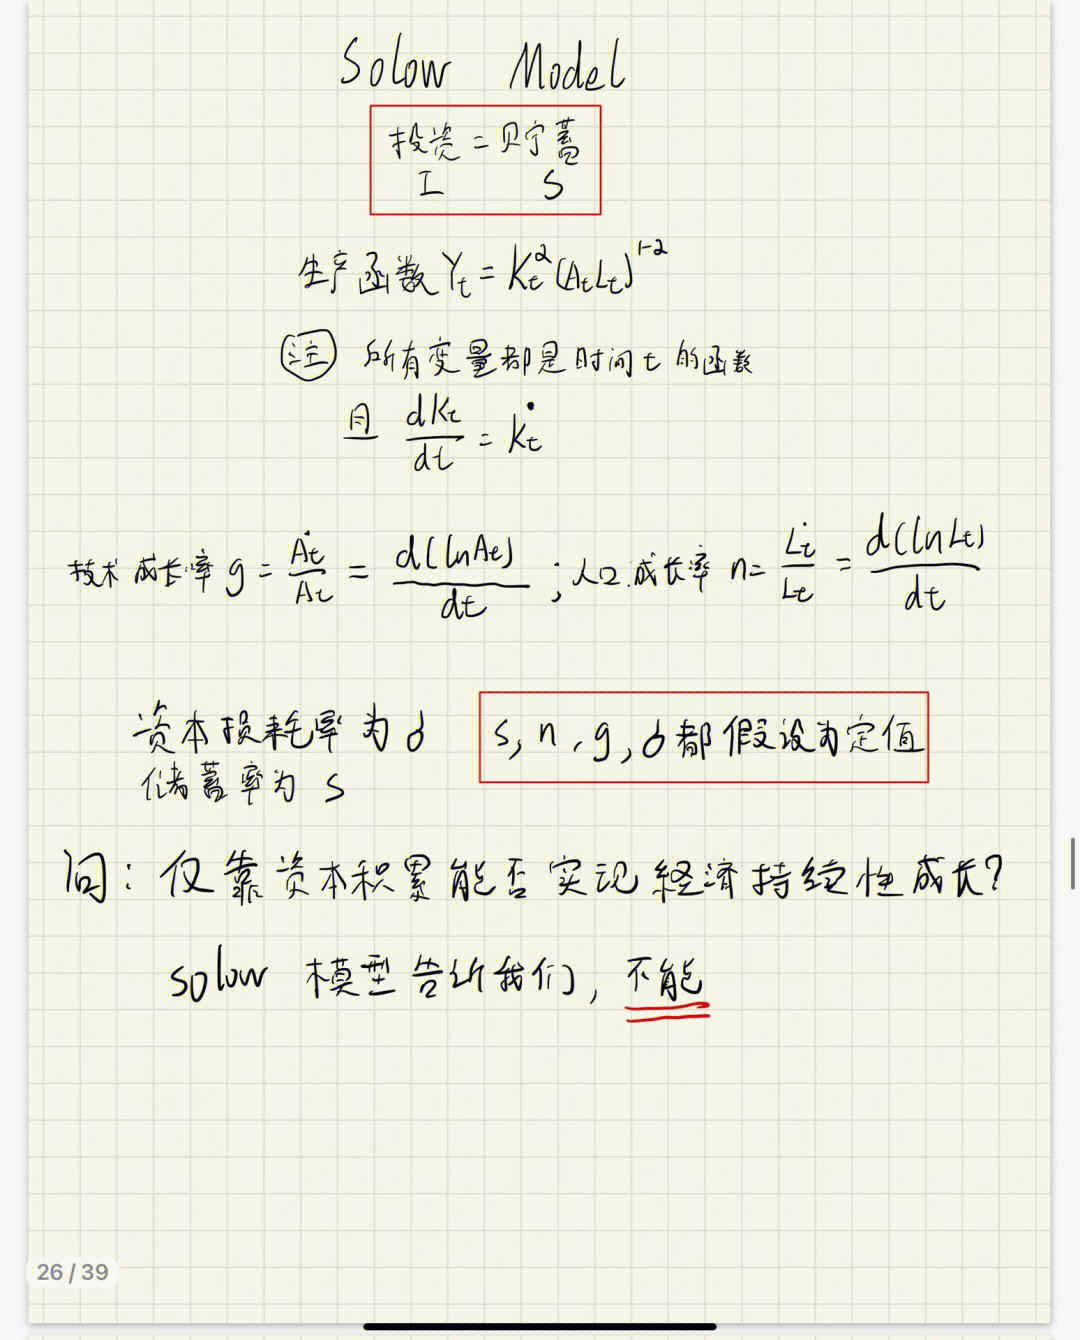 Solow Model
投资 = 贮蓄
I S
生产函数 Yt = Kt^α (AtLt)^1-α
注 所有变量都是时间 t 的函数
且 dKt/dt = K̇t
技术成长率 g = Ȧt/At = d(lnAt)/dt ; 人口成长率 n = L̇t/Lt = d(lnLt)/dt
资本损耗率为 δ
储蓄率为 s
s, n, g, δ 都假设为定值
问: 仅靠资本积累能否实现経済持续性成长?
solow 模型告诉我们, 不能
26 / 39